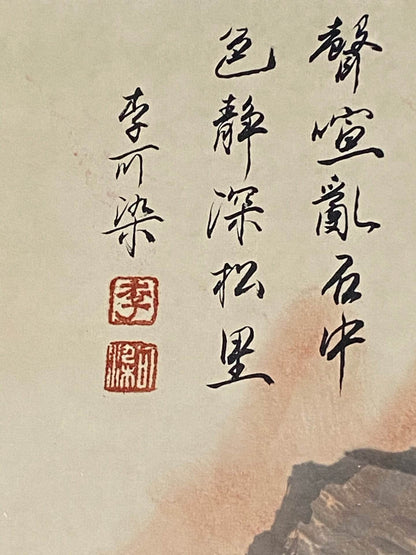 聲喧亂石中
色靜深松里
李可染
李
可染